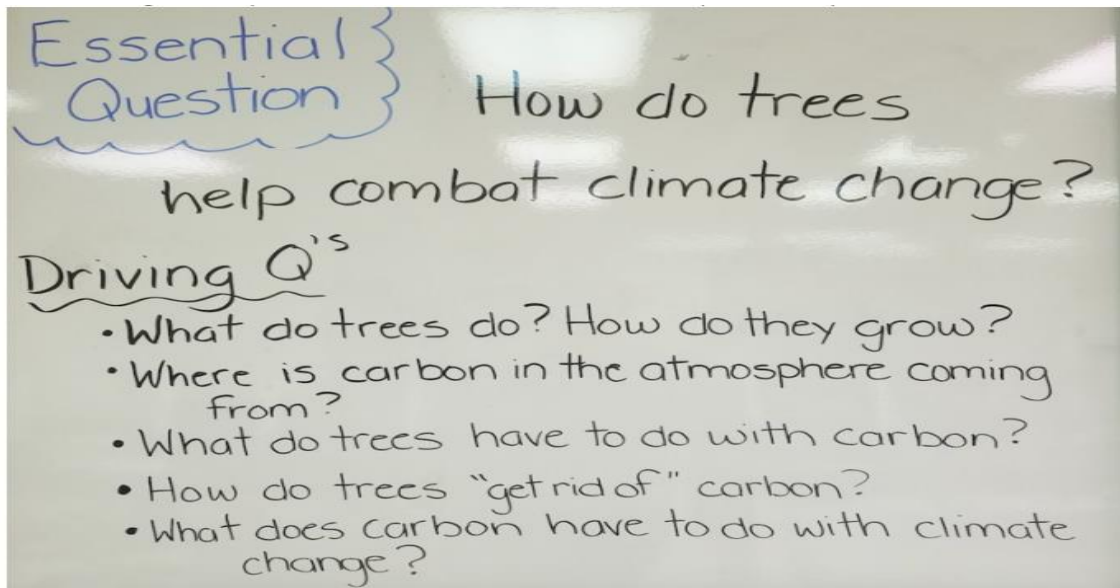 Essential
Question
How do trees
help combat climate change?
Driving Q's
• What do trees do? How do they grow?
• Where is carbon in the atmosphere coming
from?
• What do trees have to do with carbon?
• How do trees "get rid of" carbon?
• What does carbon have to do with climate
change?